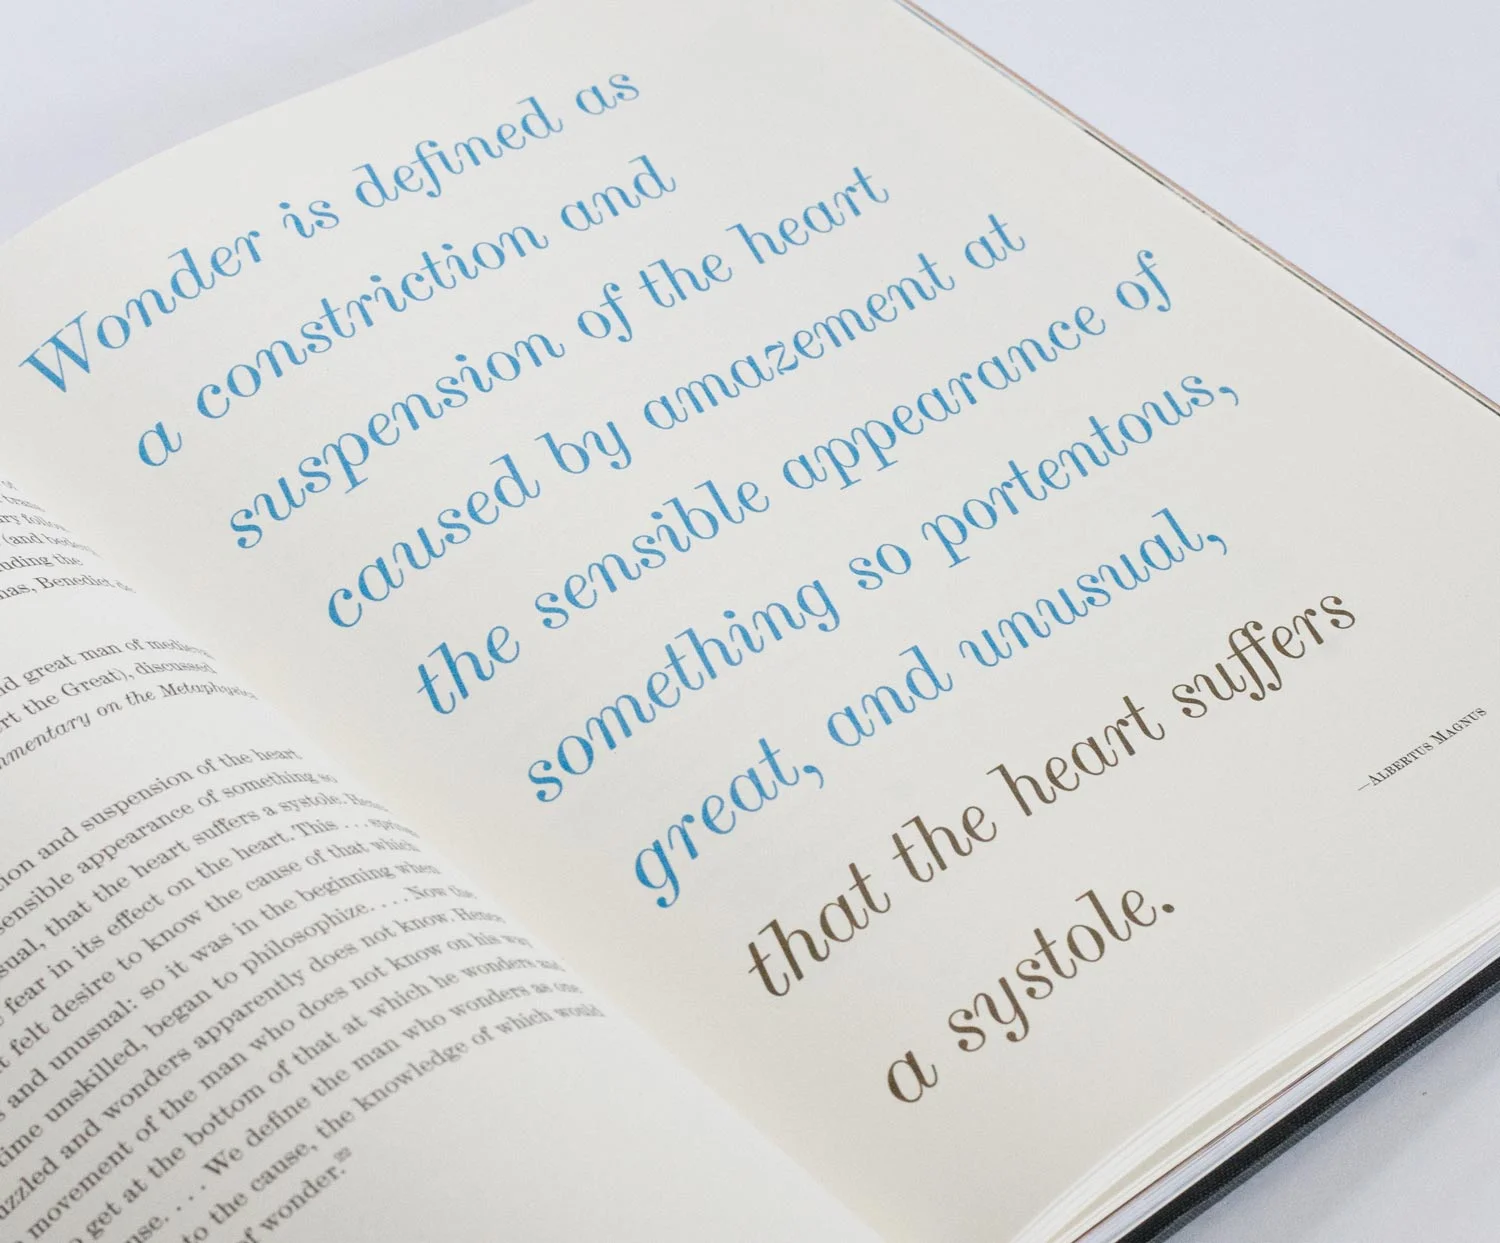 trans
ary follow
(and
nding the
mas, Benedict de
d great man of
rt the Great), discussed
mmentary on the Metaphysics
ion and suspension of the heart
sensible appearance of something so
sual, that the heart suffers a systole.
fear in its effect on the heart. This . . .
t felt desire to know the cause of that which
s and unusual: so it was in the beginning when
time unskilled, began to philosophize. . . . Now the
uzzled and wonders apparently does not know. Hence
movement of the man who does not know on his way
to get at the bottom of that at which he wonders and
use. . . . We define the man who wonders as one
to the cause, the knowledge of which would
of wonder.²²
Wonder is defined as
a constriction and
suspension of the heart
caused by amazement at
the sensible appearance of
something so portentous,
great, and unusual,
that the heart suffers
a systole.
—Albertus Magnus